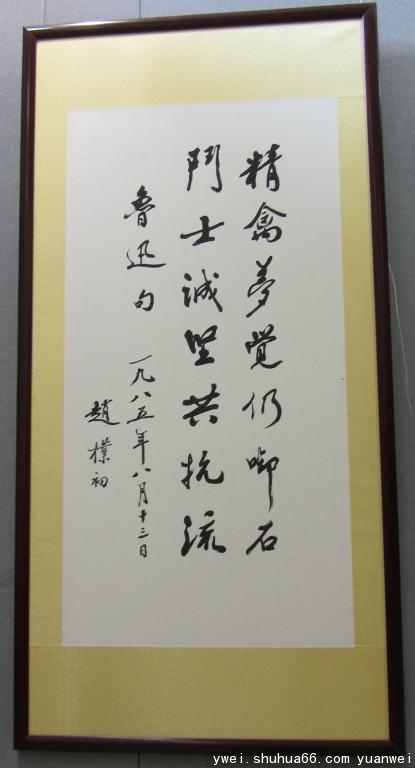 精禽夢覺仍啣石
鬥士誠堅共抗流
魯迅句
一九八五年八月十三日
趙樸初
ywei.shuhua66.com yuanwei